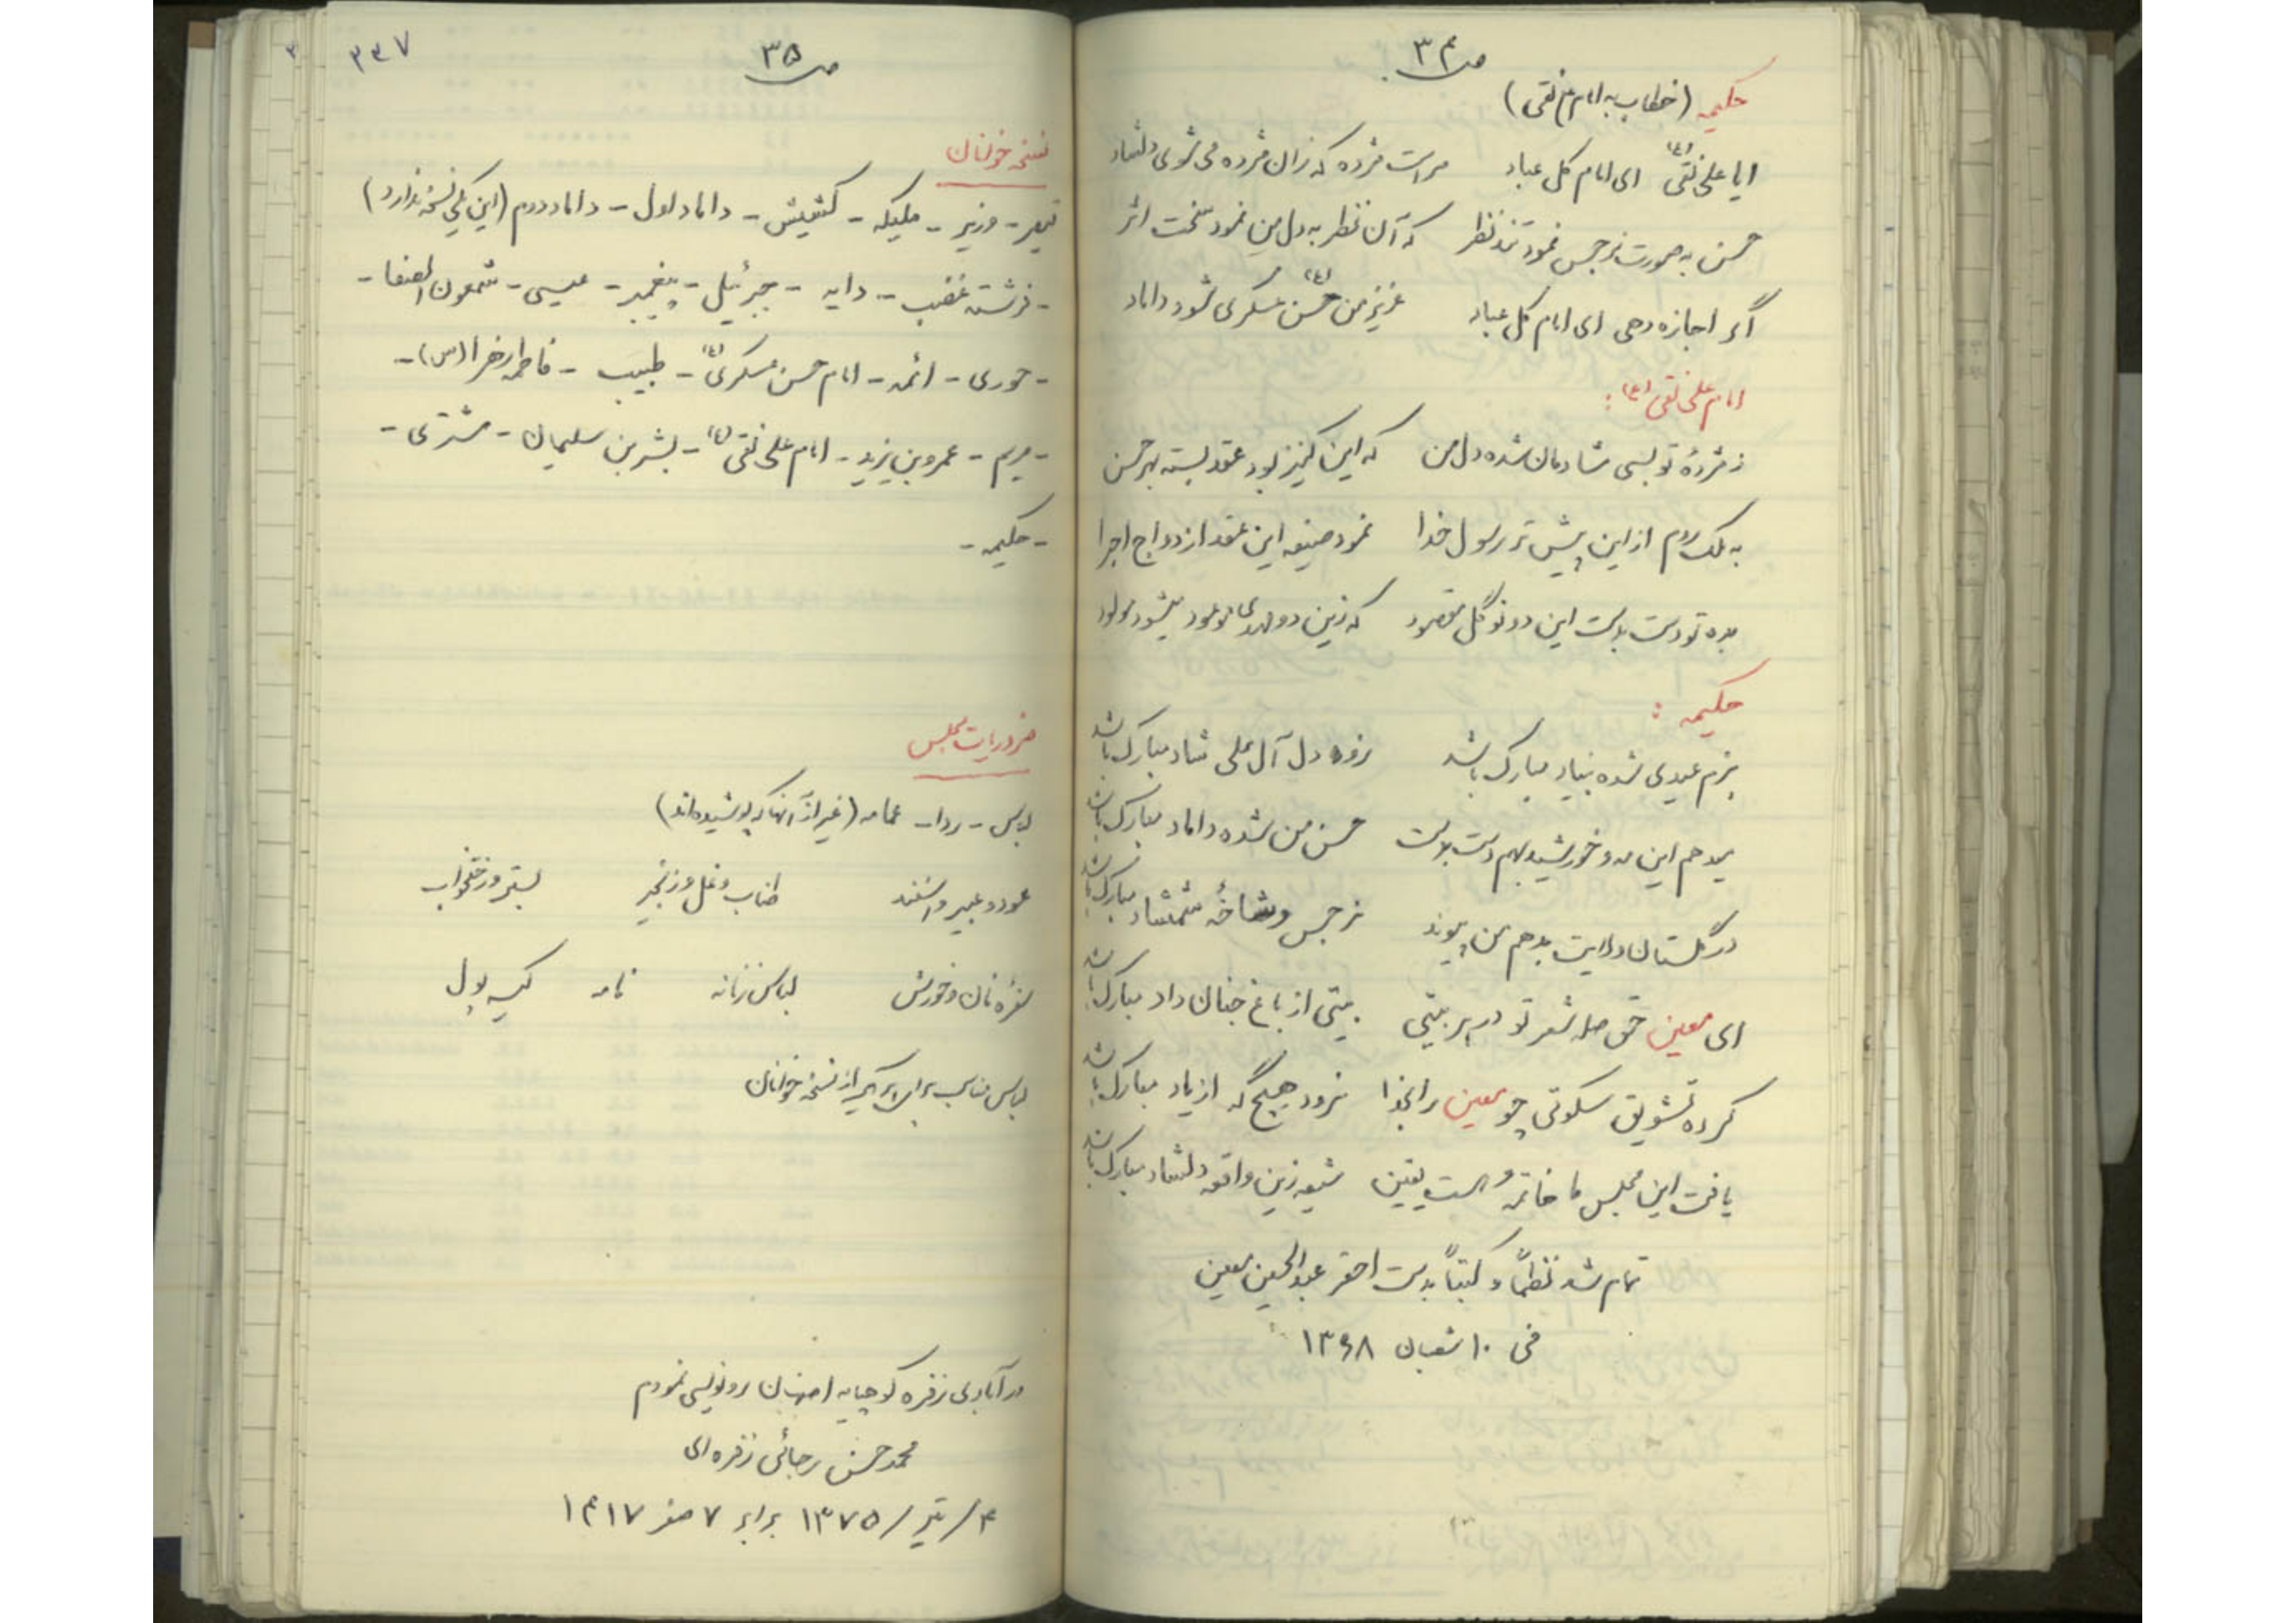 صـ ۳۴
حکیمه (خطاب به امام علی نقی)
ایا علی نقی (ع) ای امام کل عباد مراست مژده که زان مژده می شوی دلشاد
حسن به صورت نرجس نمود تند نظر که آن نظر به دل من نمود سخت اثر
اگر اجازه دهی ای امام کل عباد عزیز من حسن (ع) عسکری شود داماد
امام علی نقی (ع) :
ز مژدهٔ تو بسی شادمان شده دل من که این کنیز بود عقد بسته بهر حسن
به ملک روم از این پیش تر رسول خدا نمود صیغه این عقد ازدواج اجرا
بده تو دست بدست این دو نوگل مقصود که زین دو مهدی موعود میشود مولود
حکیمه :
بزم عیدی شده بنیاد مبارک باشد زوه دل آل علی شاد مبارک باشد
میدهم این مه و خورشید بهم دست بدست حسن من شده داماد مبارک باشد
در گلستان ولایت بدهم من پیوند نرجس و شاخهٔ شمشاد مبارک باشد
ای معین حق صله شعر تو در هر بیتی بیتی از باغ جنان داد مبارک باشد
کرده تشویق سکوتی چو معین را بخدا نرود هیچگه از یاد مبارک باشد
یافت این مجلس ما خاتمه و هست یقین شیعه زین واقعه دلشاد مبارک باشد
تمام شد نظماً و کتباً بدست احقر عبدالحسین معین
فی ۱۰ شعبان ۱۳۶۸
صـ ۳۵
۳۳۷
نسخه خوانان
قیصر - وزیر - ملیکه - کشیش - داماد اول - داماد دوم (این یکی نسخه ندارد)
- فرشته غضب - دایه - جبرئیل - پیغمبر - عیسی - شمعون الصفا -
- حوری - ائمه - امام حسن عسکری (ع) - طبیب - فاطمه زهرا (س) -
- مریم - عمرو بن یزید - امام علی نقی (ع) - بشر بن سلیمان - مشتری -
- حکیمه -
ضروریات مجلس
لباس - ردا - عمامه (غیر از آنها که پوشیده اند)
عود و عبیر و اسفند طناب و غل و زنجیر بستر و رختخواب
سفره نان و خورش لباس زنانه نامه کیسه پول
لباس مناسب برای هر یک از نسخه خوانان
در آبادی زفره کوهپایه اصفهان رونویسی نمودم
محمد حسن رجائی زفره ای
۴/تیر/۱۳۷۵ برابر ۷ صفر ۱۴۱۷